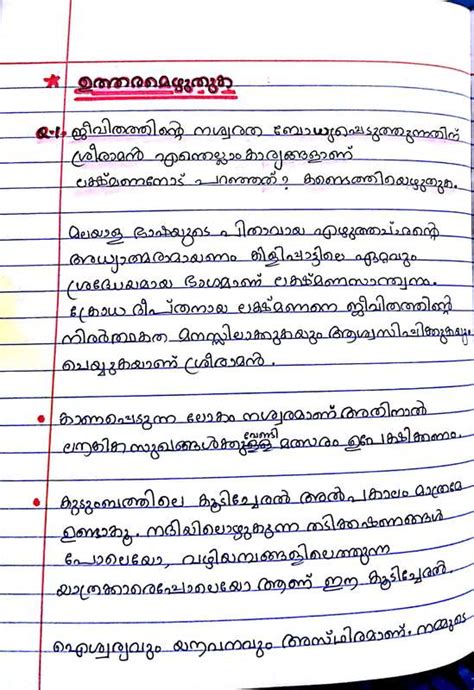 ★ ഉത്തരമെഴുതുക
Q-1. ജീവിതത്തിന്റെ നശ്വരത ബോധ്യപ്പെടുത്തുന്നതിന്
ശ്രീരാമൻ എന്തെല്ലാം കാര്യങ്ങളാണ്
ലക്ഷ്മണനോട് പറഞ്ഞത്? കണ്ടെത്തിയെഴുതുക.
മലയാള ഭാഷയുടെ പിതാവായ എഴുത്തച്ഛന്റെ
അധ്യാത്മരാമായണം കിളിപ്പാട്ടിലെ ഏറ്റവും
ശ്രദ്ധേയമായ ഭാഗമാണ് ലക്ഷ്മണസാന്ത്വനം.
ക്രോധ ദീപ്തനായ ലക്ഷ്മണനെ ജീവിതത്തിന്റെ
നിരർത്ഥകത മനസ്സിലാക്കുകയും ആശ്വസിപ്പിക്കുകയും
ചെയ്യുകയാണ് ശ്രീരാമൻ.
• കാണപ്പെടുന്ന ലോകം നശ്വരമാണ് അതിനാൽ
ലൗകിക സുഖങ്ങൾക്കു വേണ്ടിയുള്ള മത്സരം ഉപേക്ഷിക്കണം.
• കുടുംബത്തിലെ കൂടിച്ചേരൽ അൽപകാലം മാത്രമേ
ഉണ്ടാകൂ. നദിയിലൊഴുകുന്ന തടിക്കഷണങ്ങൾ
പോലെയോ, വഴിയമ്പങ്ങളിലെത്തുന്ന
യാത്രക്കാരെപ്പോലെയോ ആണ് ഈ കൂടിച്ചേരൽ.
ഐശ്വര്യവും യൗവനവും അസ്ഥിരമാണ്. നമ്മുടെ